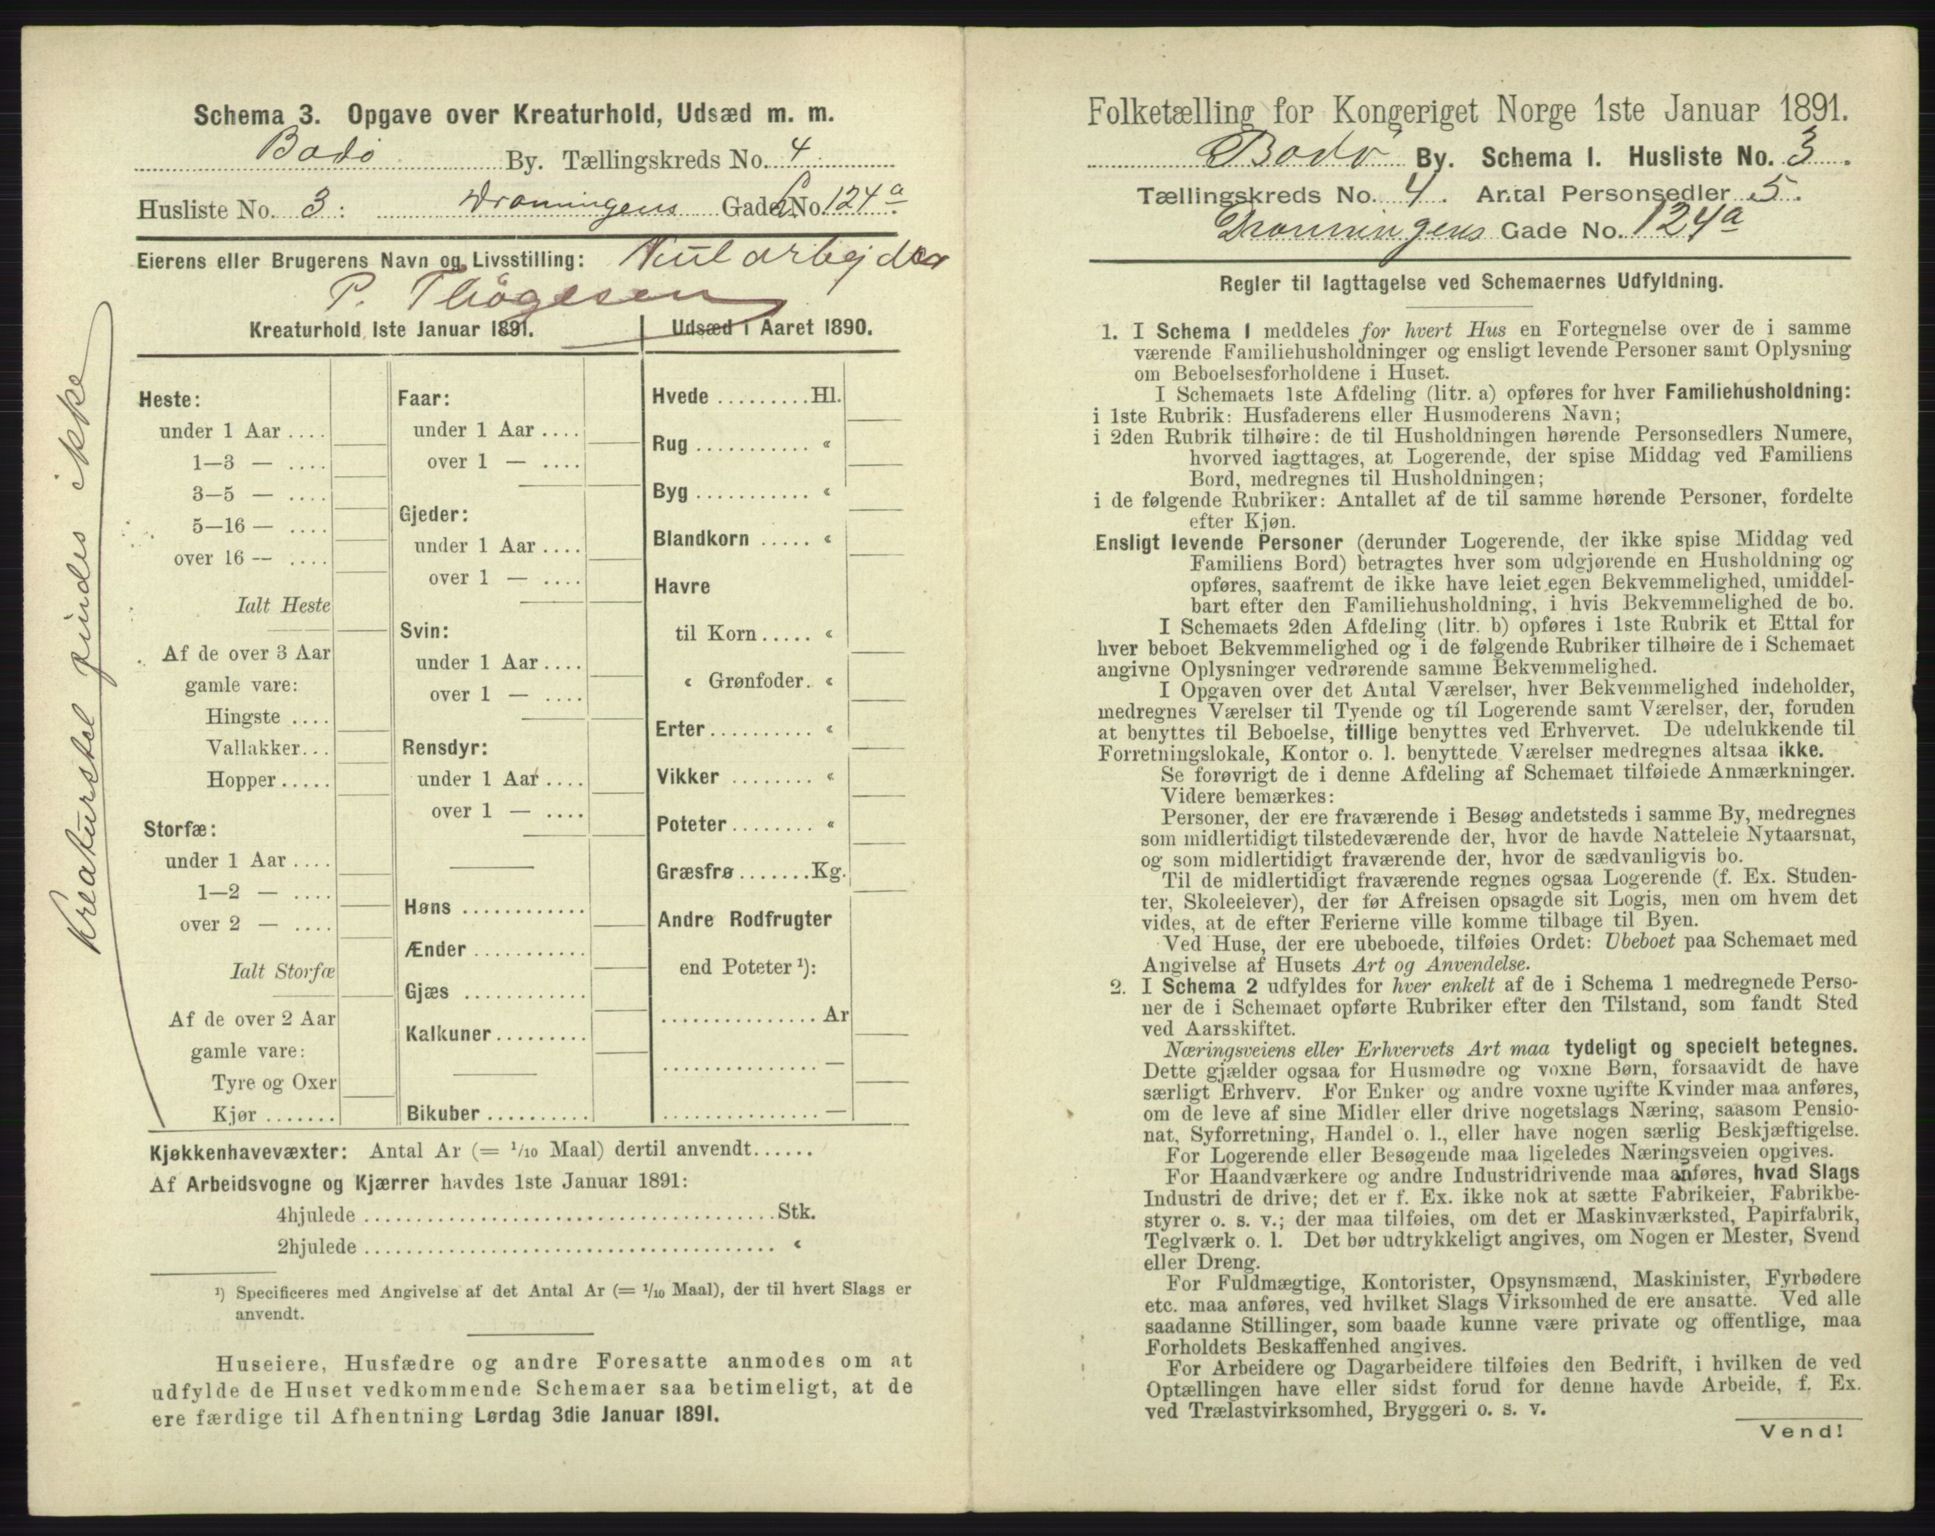 Schema 3. Opgave over Kreaturhold, Udsæd m. m.
Bodø By. Tællingskreds No. 4
Husliste No. 3: Dronningens Gade No. 124a
Eierens eller Brugerens Navn og Livsstilling:
P. Thøgesen
Kreaturhold 1ste Januar 1891.
Heste:
under 1 Aar ....
1—3 — ....
3—5 — ....
5—16 — ....
over 16 — ....
Ialt Heste
Af de over 3 Aar
gamle vare:
Hingste ....
Vallakker...
Hopper.....
Storfæ:
under 1 Aar ....
1—2 — ....
over 2 — ....
Ialt Storfæ
Af de over 2 Aar
gamle vare:
Tyre og Oxer
Kjør .......
Faar:
under 1 Aar ....
over 1 — ....
Gjeder:
under 1 Aar ....
over 1 — ....
Svin:
under 1 Aar ....
over 1 — ....
Rensdyr:
under 1 Aar ....
over 1 — ....
Høns ............
Ænder ...........
Gjæs ............
Kalkuner.........
Bikuber ..........
Udsæd i Aaret 1890.
Hvede .........Hl.
Rug ........... «
Byg ........... «
Blandkorn ..... «
Havre
til Korn..... «
« Grønfoder. «
Erter.......... «
Vikker ........ «
Poteter........ «
Græsfrø .......Kg.
Andre Rodfrugter
end Poteter ¹):
............... Ar
............... —
............... —
Kreaturstel findes ikke
Kjøkkenhavevæxter: Antal Ar (= 1/10 Maal) dertil anvendt......
Af Arbeidsvogne og Kjærrer havdes 1ste Januar 1891:
4hjulede ........................................Stk.
2hjulede ........................................ «
¹) Specificeres med Angivelse af det Antal Ar (= 1/10 Maal), der til hvert Slags er
anvendt.
Huseiere, Husfædre og andre Foresatte anmodes om at
udfylde de Huset vedkommende Schemaer saa betimeligt, at de
ere færdige til Afhentning Lørdag 3die Januar 1891.
Folketælling for Kongeriget Norge 1ste Januar 1891.
Bodø By. Schema I. Husliste No. 3.
Tællingskreds No. 4. Antal Personsedler 5.
Dronningens Gade No. 124a
Regler til Iagttagelse ved Schemaernes Udfyldning.
1. I Schema I meddeles for hvert Hus en Fortegnelse over de i samme
værende Familiehusholdninger og ensligt levende Personer samt Oplysning
om Beboelsesforholdene i Huset.
I Schemaets 1ste Afdeling (litr. a) opføres for hver Familiehusholdning:
i 1ste Rubrik: Husfaderens eller Husmoderens Navn;
i 2den Rubrik tilhøire: de til Husholdningen hørende Personsedlers Numere,
hvorved iagttages, at Logerende, der spise Middag ved Familiens
Bord, medregnes til Husholdningen;
i de følgende Rubriker: Antallet af de til samme hørende Personer, fordelte
efter Kjøn.
Ensligt levende Personer (derunder Logerende, der ikke spise Middag ved
Familiens Bord) betragtes hver som udgjørende en Husholdning og
opføres, saafremt de ikke have leiet egen Bekvemmelighed, umiddel-
bart efter den Familiehusholdning, i hvis Bekvemmelighed de bo.
I Schemaets 2den Afdeling (litr. b) opføres i 1ste Rubrik et Ettal for
hver beboet Bekvemmelighed og i de følgende Rubriker tilhøire de i Schemaet
angivne Oplysninger vedrørende samme Bekvemmelighed.
I Opgaven over det Antal Værelser, hver Bekvemmelighed indeholder,
medregnes Værelser til Tyende og til Logerende samt Værelser, der, foruden
at benyttes til Beboelse, tillige benyttes ved Erhvervet. De udelukkende til
Forretningslokale, Kontor o. l. benyttede Værelser medregnes altsaa ikke.
Se forøvrigt de i denne Afdeling af Schemaet tilføiede Anmærkninger.
Videre bemærkes:
Personer, der ere fraværende i Besøg andetsteds i samme By, medregnes
som midlertidigt tilstedeværende der, hvor de havde Natteleie Nytaarsnat,
og som midlertidigt fraværende der, hvor de sædvanligvis bo.
Til de midlertidigt fraværende regnes ogsaa Logerende (f. Ex. Studen-
ter, Skoleelever), der før Afreisen opsagde sit Logis, men om hvem det
vides, at de efter Ferierne ville komme tilbage til Byen.
Ved Huse, der ere ubeboede, tilføies Ordet: Ubeboet paa Schemaet med
Angivelse af Husets Art og Anvendelse.
2. I Schema 2 udfyldes for hver enkelt af de i Schema 1 medregnede Perso-
ner de i Schemaet opførte Rubriker efter den Tilstand, som fandt Sted
ved Aarsskiftet.
Næringsveiens eller Erhvervets Art maa tydeligt og specielt betegnes.
Dette gjælder ogsaa for Husmødre og voxne Børn, forsaavidt de have
særligt Erhverv. For Enker og andre voxne ugifte Kvinder maa anføres,
om de leve af sine Midler eller drive nogetslags Næring, saasom Pensio-
nat, Syforretning, Handel o. l., eller have nogen særlig Beskjæftigelse.
For Logerende eller Besøgende maa ligeledes Næringsveien opgives.
For Haandværkere og andre Industridrivende maa anføres, hvad Slags
Industri de drive; det er f. Ex. ikke nok at sætte Fabrikeier, Fabrikbe-
styrer o. s. v.; der maa tilføies, om det er Maskinværksted, Papirfabrik,
Teglværk o. l. Det bør udtrykkeligt angives, om Nogen er Mester, Svend
eller Dreng.
For Fuldmægtige, Kontorister, Opsynsmænd, Maskinister, Fyrbødere
etc. maa anføres, ved hvilket Slags Virksomhed de ere ansatte. Ved alle
saadanne Stillinger, som baade kunne være private og offentlige, maa
Forholdets Beskaffenhed angives.
For Arbeidere og Dagarbeidere tilføies den Bedrift, i hvilken de ved
Optællingen have eller sidst forud for denne havde Arbeide, f. Ex.
ved Trælastvirksomhed, Bryggeri o. s. v.
Vend!